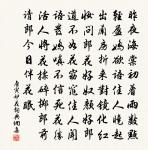 昨夜海棠初着雨數點
輕盈嬌欲語佳人曉起
出蘭房折來對鏡化紅
妝問郎花好奴顏好郎
道不如花窈窕佳人聞
語發嬌嗔不信死花勝
活人將花揉碎擲郎前
請郎今日伴花眠
唐寅妒花歌